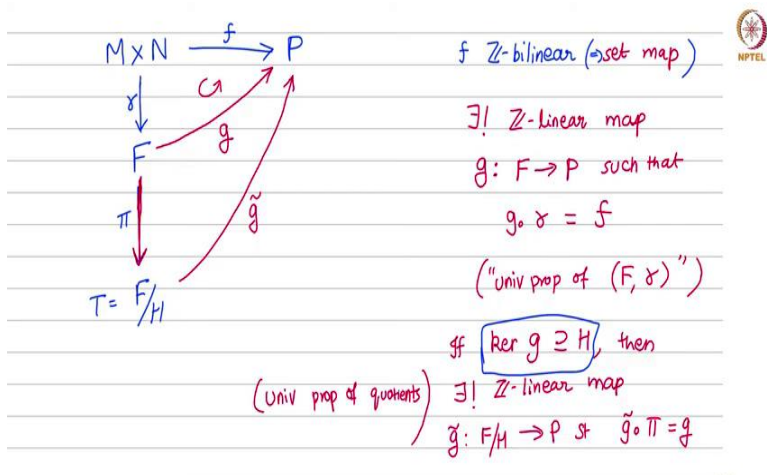 M×N →f P
f ℤ-bilinear (⇒set map)
γ
g
F
∃! ℤ-linear map
g: F→P such that
π
g̃
g∘γ = f
("univ prop of (F,γ)")
T = F/H
If ker g ⊇ H, then
(univ prop of quotients) ∃! ℤ-linear map
g̃: F/H → P st g̃∘π = g
NPTEL